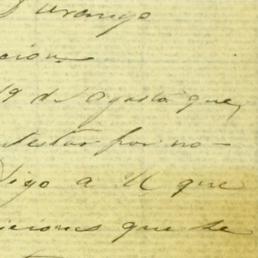 Durango
cion
19 de Agosto que,
testar por no-
digo a U. que
iciones que se